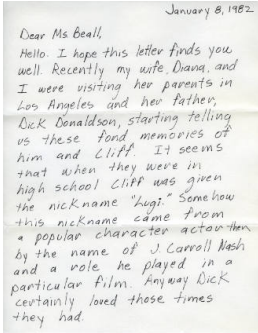 January 8, 1982
Dear Ms Beall,
Hello. I hope this letter finds you
well. Recently my wife, Diana, and
I were visiting her parents in
Los Angeles and her father,
Dick Donaldson, starting telling
us these fond memories of
him and Cliff. It seems
that when they were in
high school Cliff was given
the nickname "Lugi." Somehow
this nickname came from
a popular character actor then
by the name of J. Carroll Nash
and a role he played in a
particular film. Anyway Dick
certainly loved those times
they had.